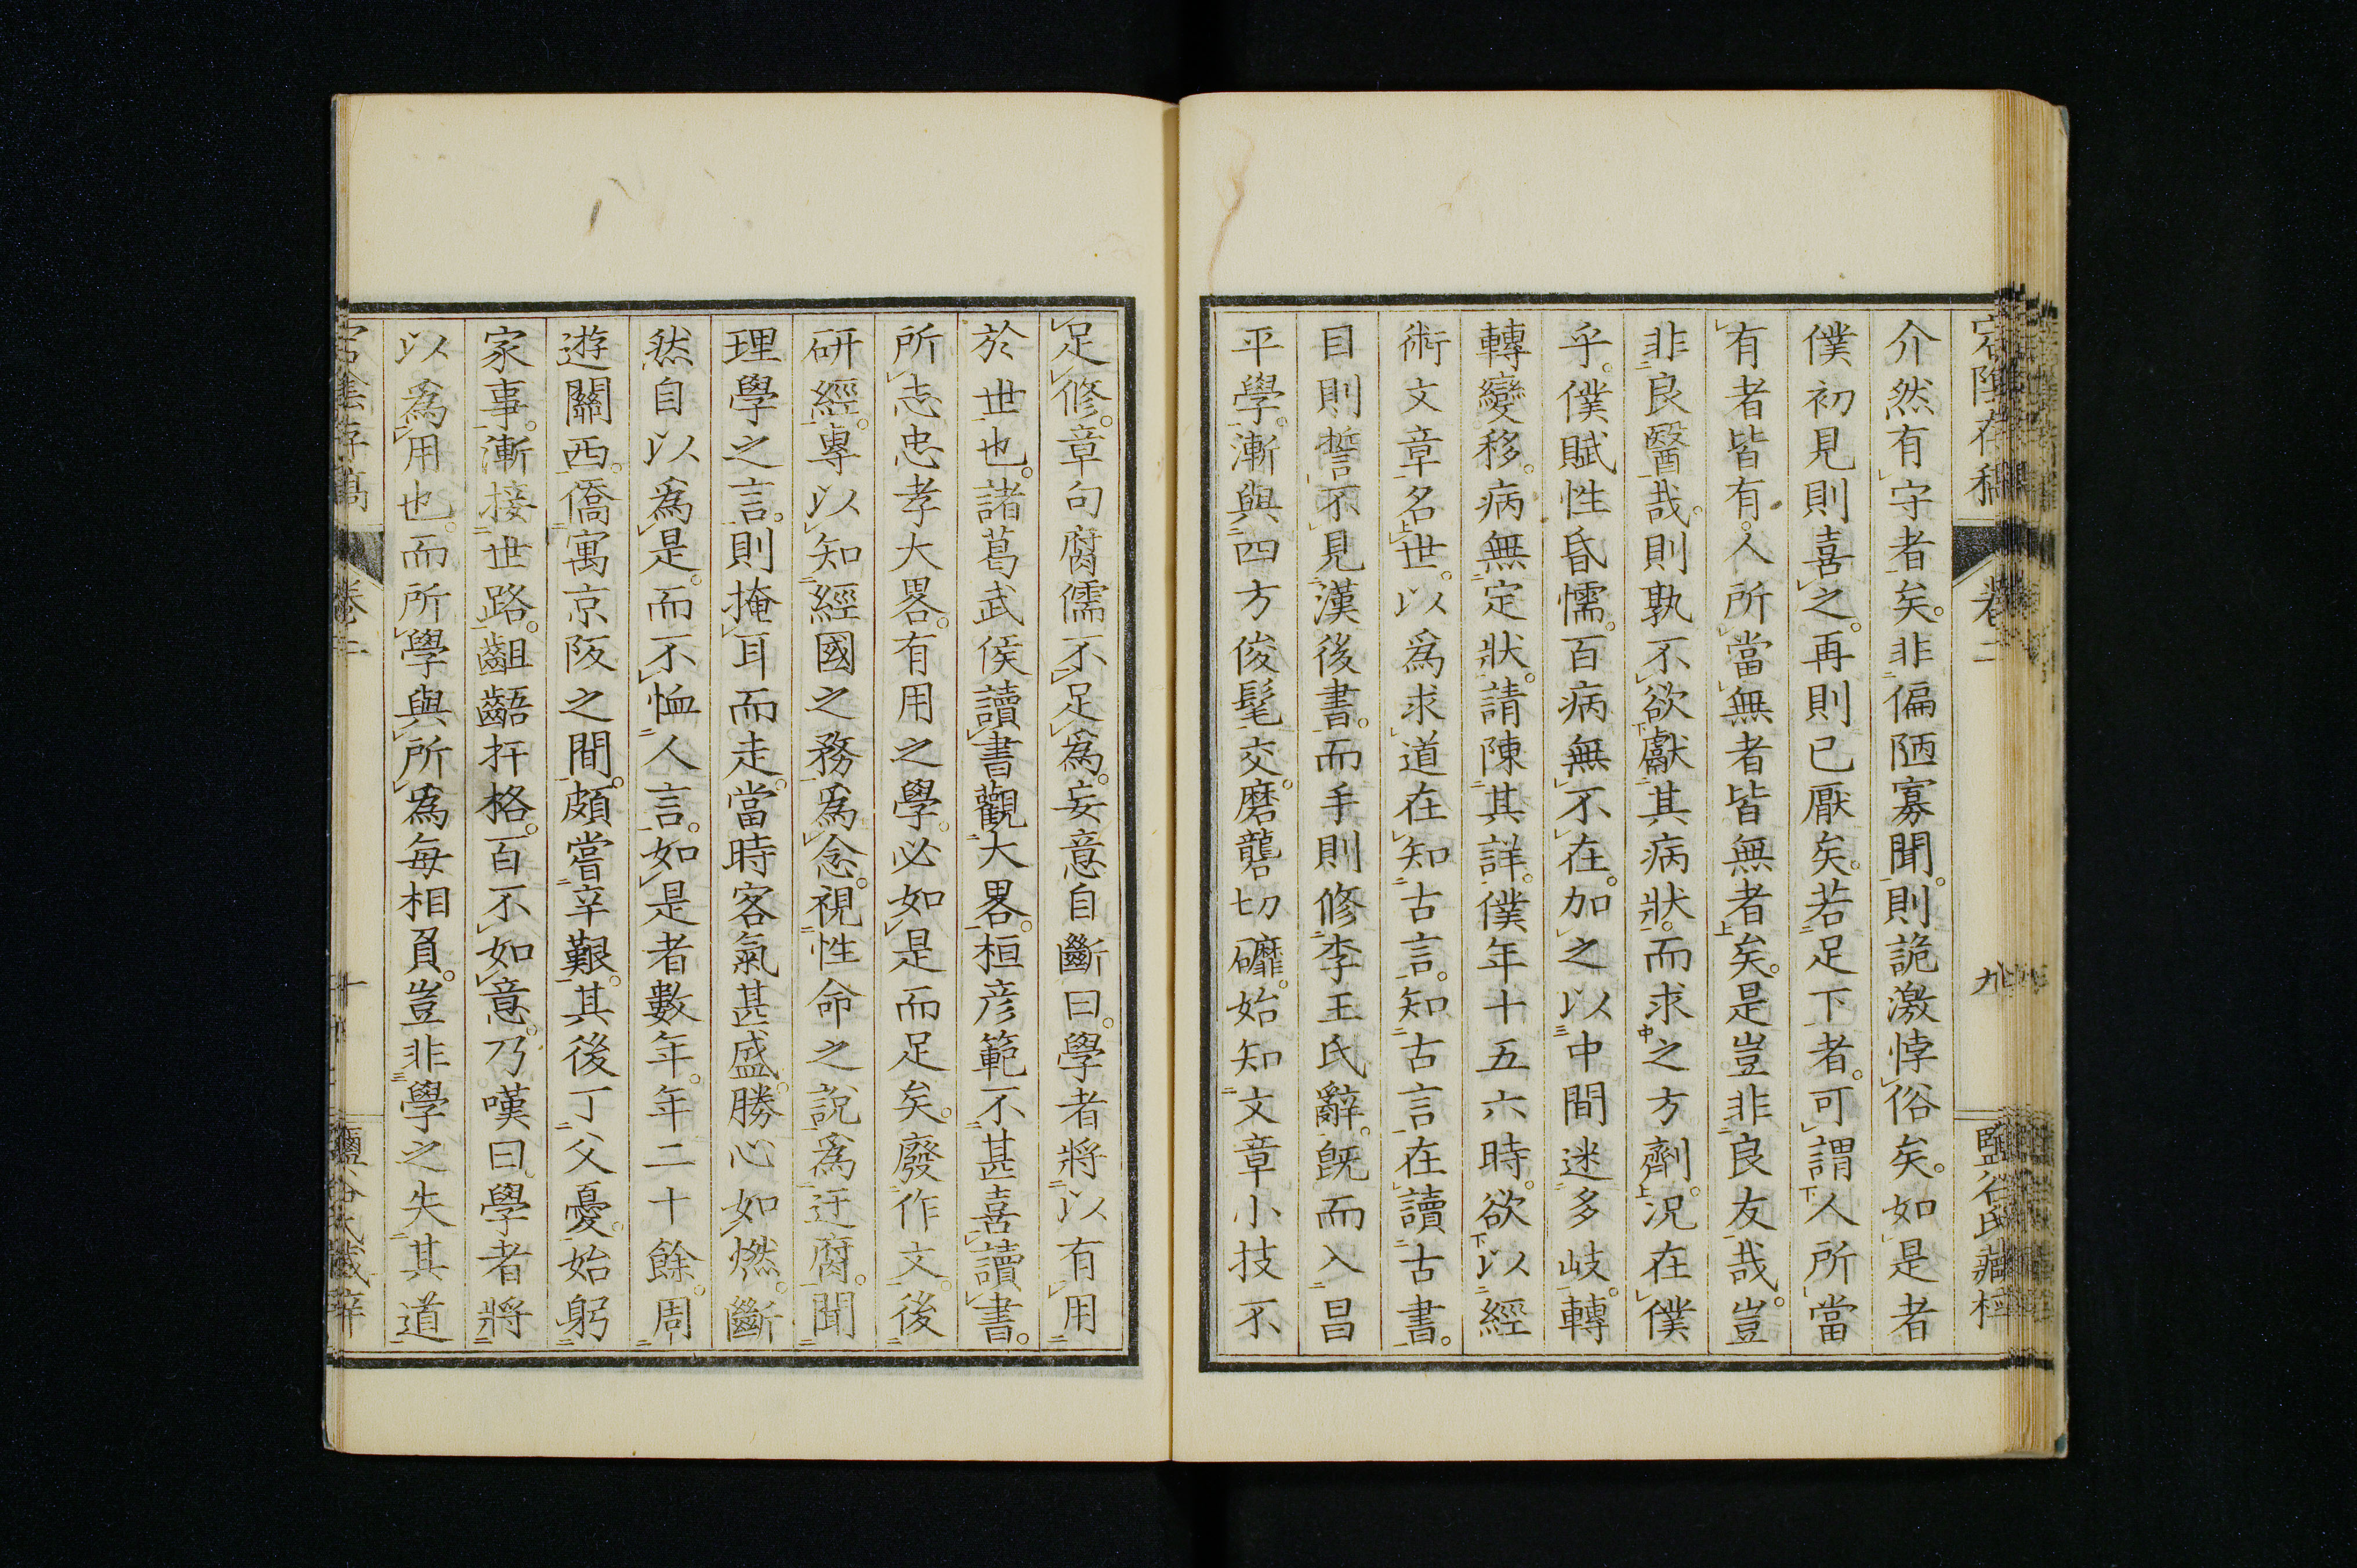 宕陰存稿 卷二 九 鹽谷氏藏梓
介然有守者矣。非偏陋寡聞。則詭激悖俗矣。如是者
僕初見則喜之。再則已厭矣。若足下者。可謂人所當
有者皆有。人所當無者皆無者矣。是豈非良友哉。豈
非良醫哉。則孰不欲獻其病狀。而求之方劑。況在僕
乎。僕賦性昏懦。百病無不在。加之以中間迷多岐。轉
轉變移。病無定狀。請陳其詳。僕年十五六時。欲以經
術文章名世。以爲求道在知古言。知古言在讀古書。
目則誓不見漢後書。而手則修李王氏辭。既而入昌
平學。漸與四方俊髦交。磨礱切礲。始知文章小技不
足修。章句腐儒不足爲。妄意自斷曰。學者將以有用
於世也。諸葛武侯讀書觀大畧。桓彦範不甚喜讀書。
所志忠孝大畧。有用之學。必如是而足矣。廢作文。後
研經。專以知經國之務爲念。視性命之說爲迂腐。聞
理學之言。則掩耳而走。當時客氣甚盛。勝心如燃。斷
然自以爲是。而不恤人言。如是者數年。年二十餘。周
遊關西。僑寓京阪之間。頗嘗辛艱。其後丁父憂。始躬
家事。漸接世路。齟齬扞格。百不如意。乃嘆曰。學者將
以爲用也。而所學與所爲每相負。豈非學之失其道
宕陰存稿 卷二 十 鹽谷氏藏梓